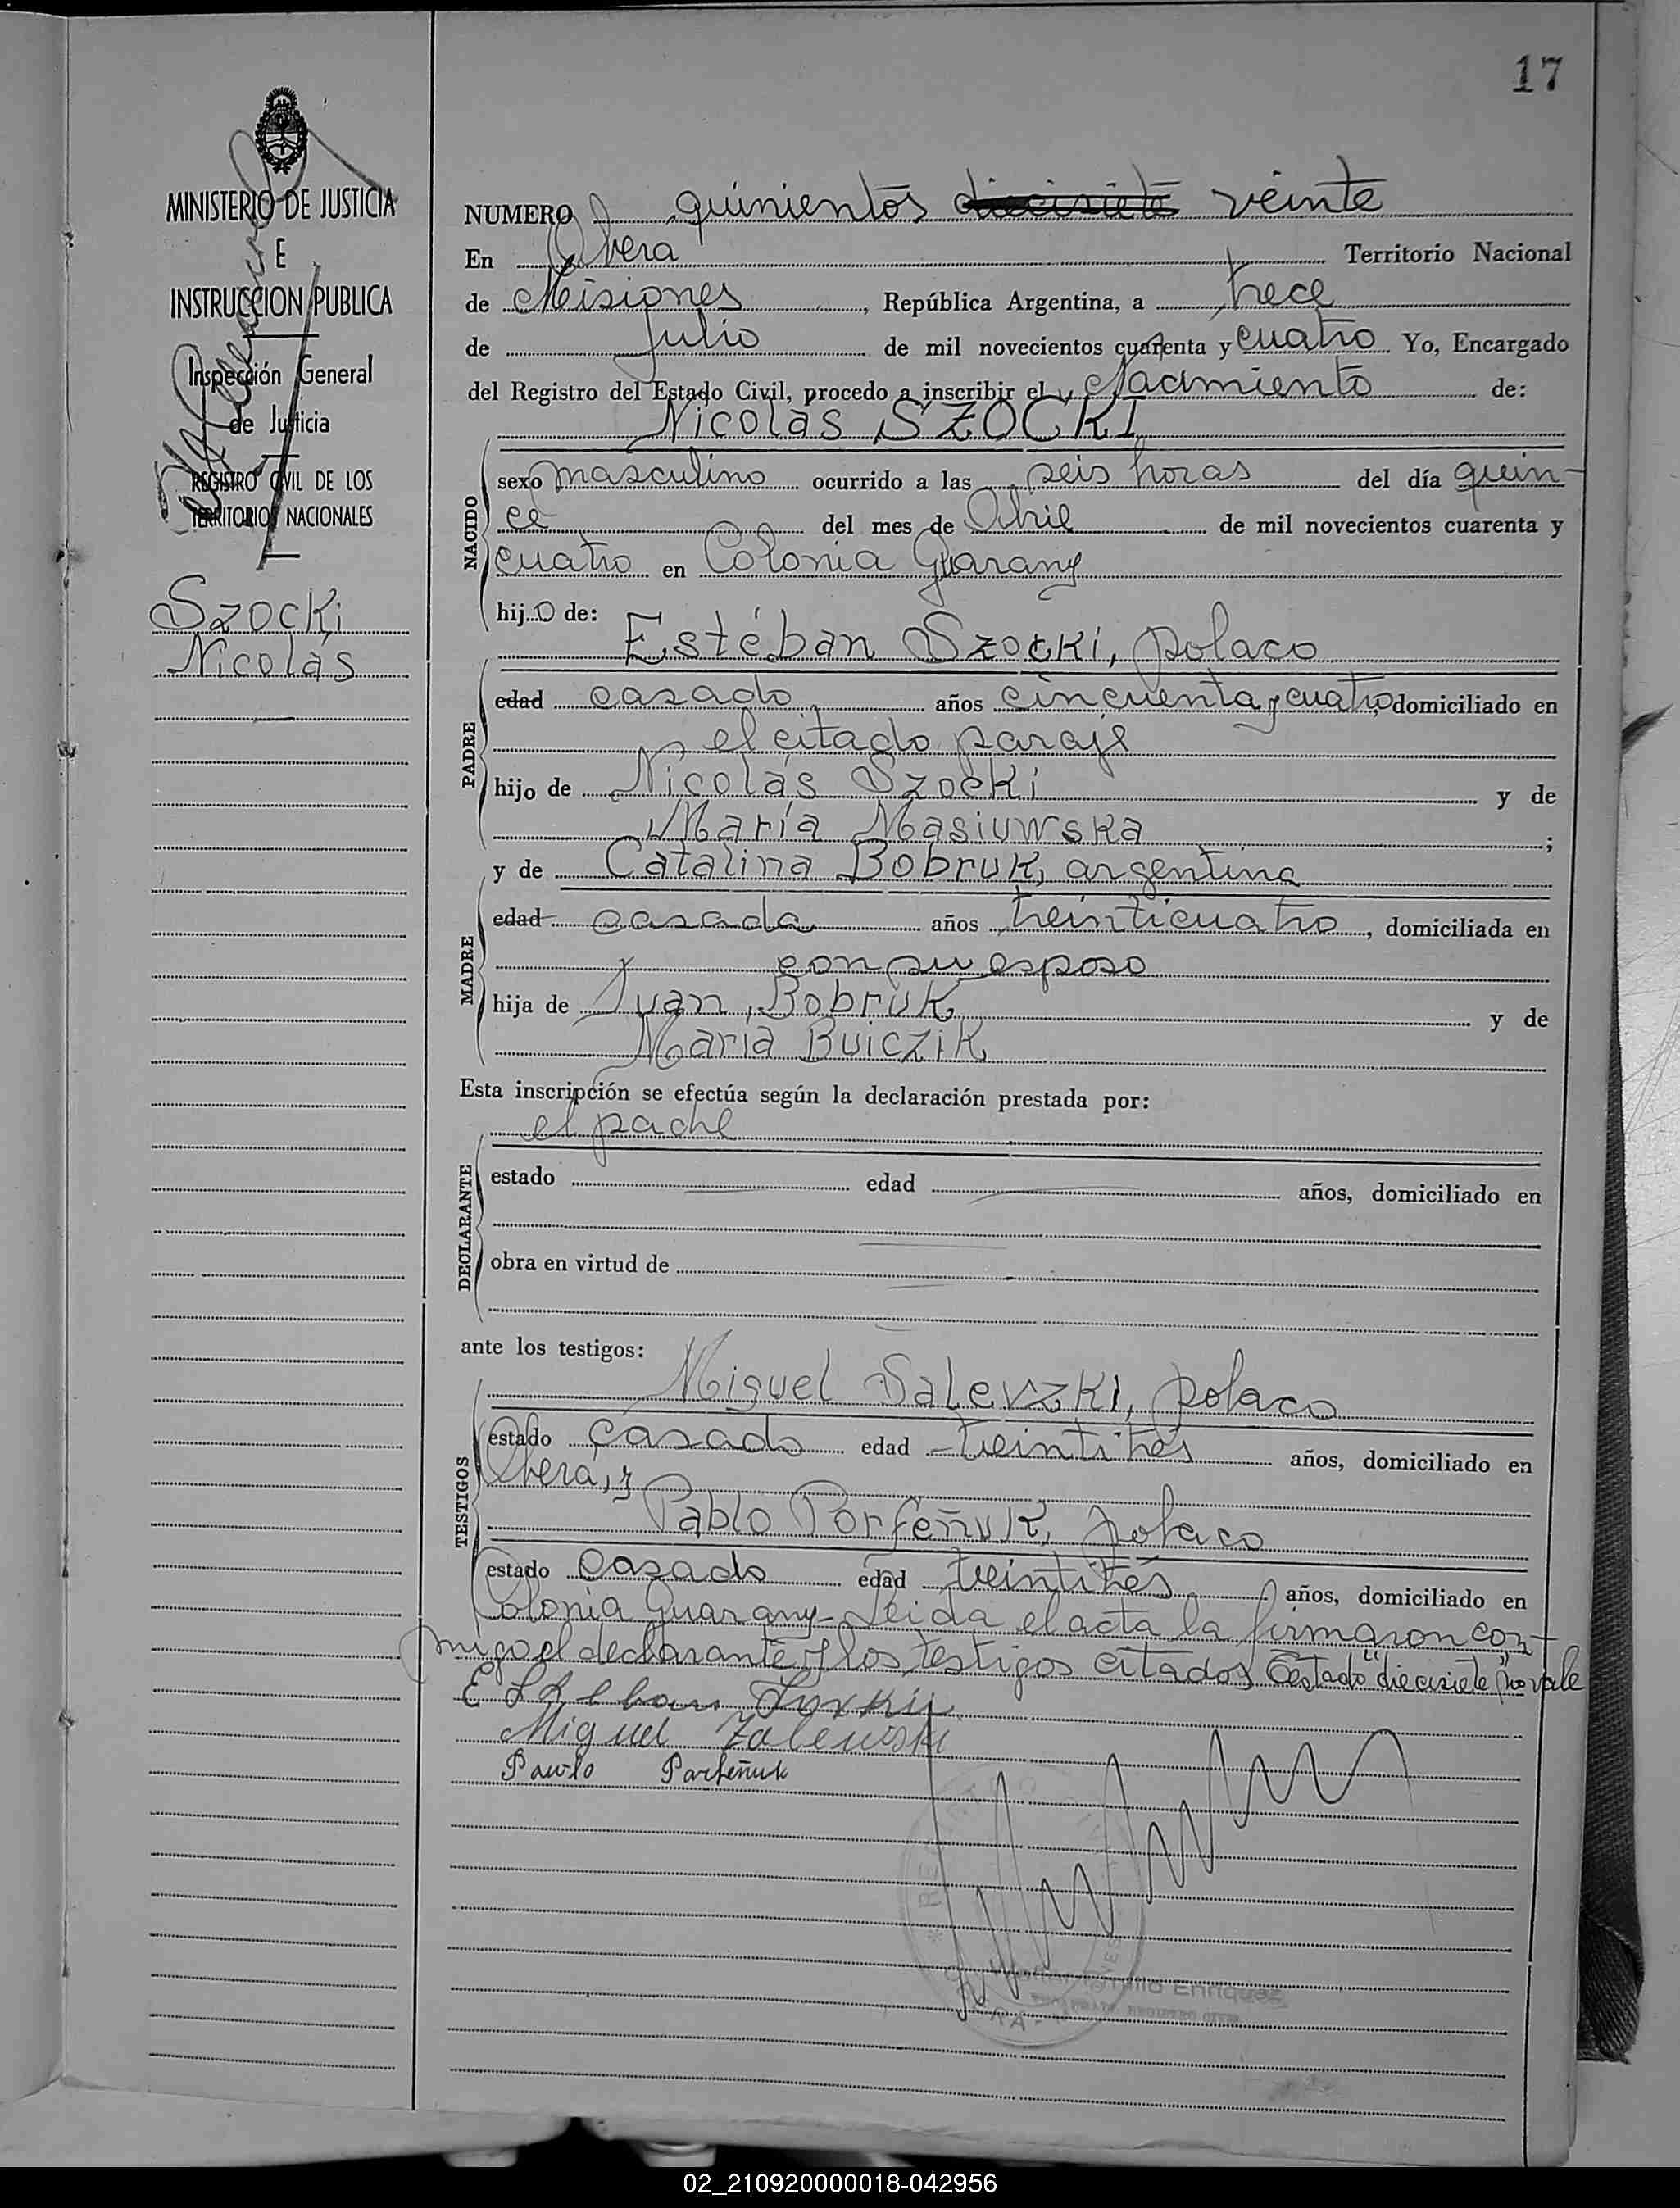 17
MINISTERIO DE JUSTICIA
E
INSTRUCCION PUBLICA
Inspección General
de Justicia
REGISTRO CIVIL DE LOS
TERRITORIOS NACIONALES
Szocki
Nicolás
NUMERO quinientos diecisiete veinte
En Oberá Territorio Nacional
de Misiones, República Argentina, a trece
de Julio de mil novecientos cuarenta y cuatro Yo, Encargado
del Registro del Estado Civil, procedo a inscribir el Nacimiento de:
Nicolás SZOCKI
NACIDO
sexo masculino ocurrido a las seis horas del día quin-
ce del mes de Abril de mil novecientos cuarenta y
cuatro en Colonia Guarany
hijo de:
Estéban Szocki, polaco
PADRE
edad casado años cincuenta y cuatro, domiciliado en
el citado paraje
hijo de Nicolás Szocki y de
María Masiuwska ;
y de Catalina Bobruk, argentina
MADRE
edad casada años treinticuatro, domiciliada en
con su esposo
hija de Juan Bobruk y de
María Buiczik
Esta inscripción se efectúa según la declaración prestada por:
el padre
DECLARANTE
estado edad años, domiciliado en
obra en virtud de
ante los testigos:
Miguel Salevzki, polaco
TESTIGOS
estado casado edad treintitrés años, domiciliado en
Oberá, y
Pablo Porfeñuk, polaco
estado casado edad treintitrés años, domiciliado en
Colonia Guarany- Leída el acta la firmaron con-
migo el declarante y los testigos citados Testado "diecisiete" no vale
Esteban
Miguel Zalewski
Pawlo Parfeñuk
Enriquez
02_210920000018-042956